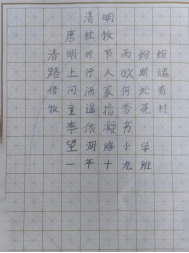 清明
唐杜牧
清明时节雨纷纷
路上行人欲断魂
借问酒家何处有
牧童遥指杏花村
李依凝书
望湖路小学
一年十九班